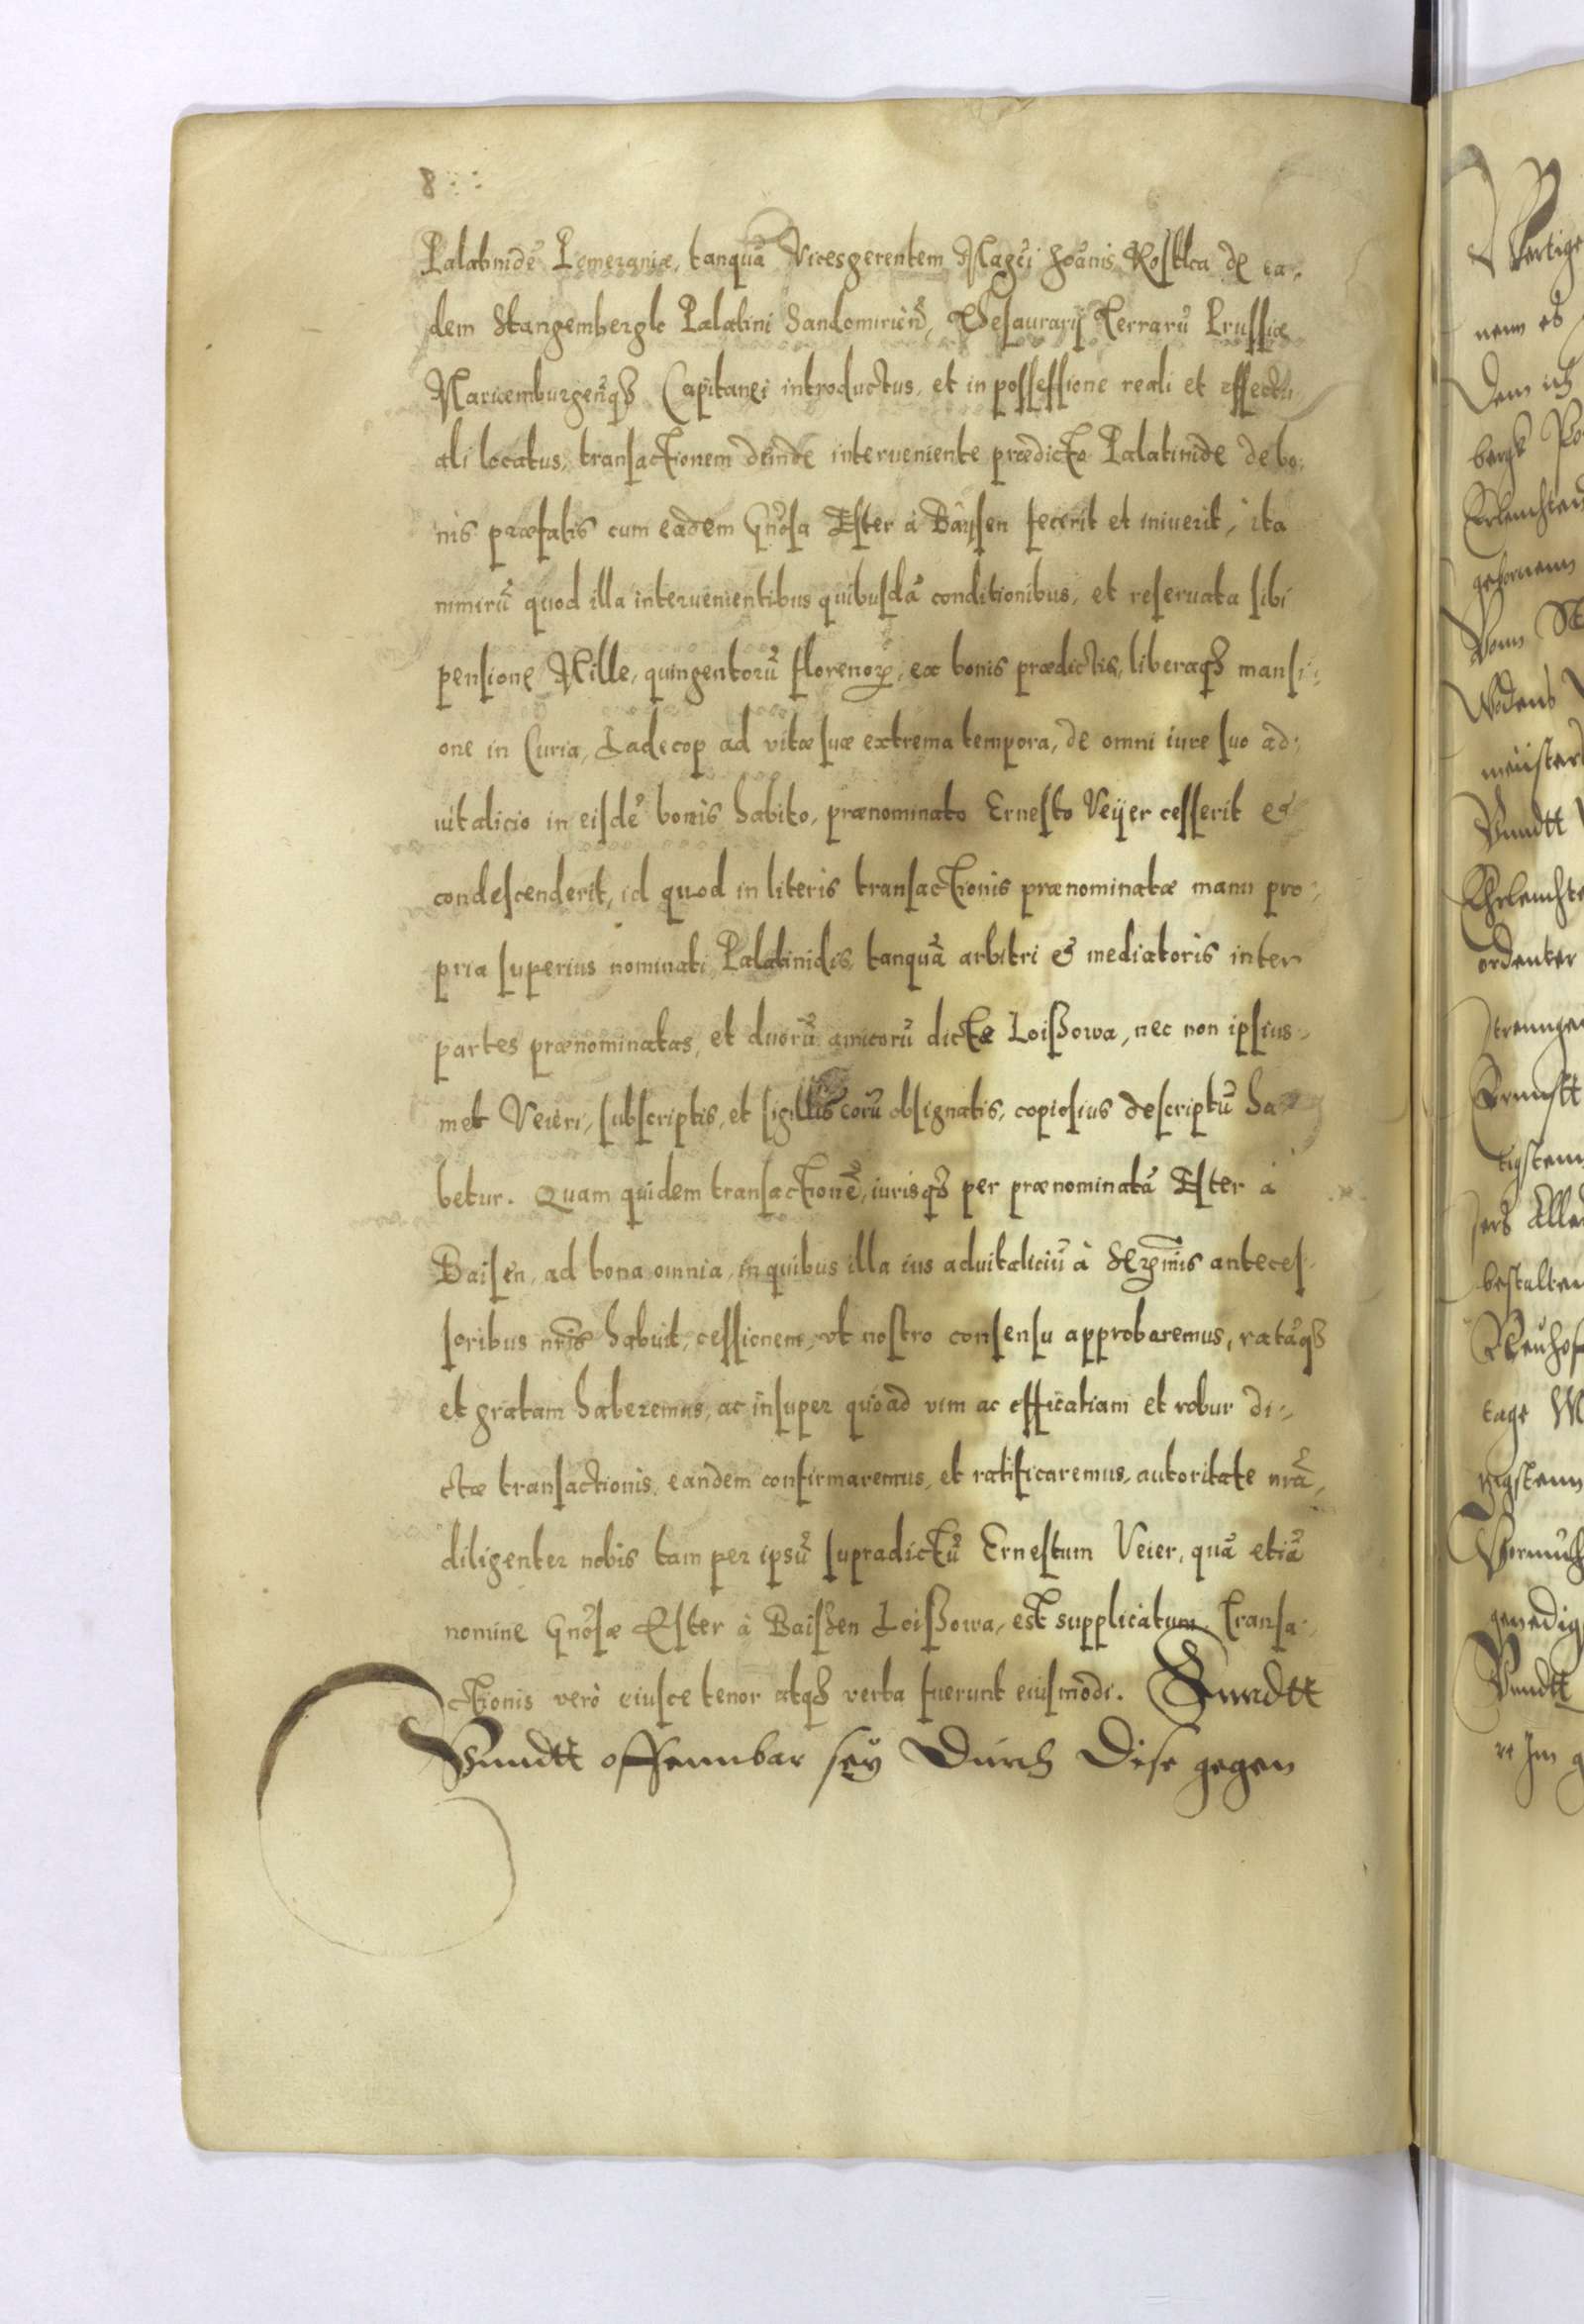 8
Palatinidē Pomeraniæ, tanquā Vicesgerentem Magci Joānis Kostka de ea-
dem Stangembergk Palatini Sandomirień, Thesaurarij Terrarū Prussiæ
Mariæmburgeñqȝ Capitanei introductus, et in possessione reali et effectu
ali locatus, transactionem deinde interueniente prædicto Palatinide de bo-
nis præfatis cum eadem Gnōsa Ester à Baysen fecerit et iniuerit, ita
nimirū quod illa interuenientibus quibusdā conditionibus, et reseruata sibi
pensione Mille, quingentorū florenorꝝ, ex bonis prædictis, liberaqȝ mansi-
one in Curia, Ladecop ad vitæ suæ extrema tempora, de omni iure suo ad-
uitalicio in eisdē bonis habito, prænominato Ernesto Veijer cesserit et
condescenderit, id quod in literis transactionis prænominatæ manu pro-
pria superius nominati Palatinidis, tanquā arbitri & mediatoris inter
partes prænominatas, et duorū amicorū dictæ Loißowa, nec non ipsius-
met Veieri, subscriptis, et sigillis eorū obsignatis, copiosius descriptū ha-
betur. Quam quidem transactionē, iurisqȝ per prænominatā Ester à
Baisen, ad bona omnia, in quibus illa ius aduitaliciū à Serꝫmis anteces-
soribus nris habuit, cessionem, vt nostro consensu approbaremus, ratāqȝ
et gratam haberemus, ac insuper quoad vim ac efficatiam et robur di-
ctæ transactionis, eandem confirmaremus, et ratificaremus, autoritate nrā,
diligenter nobis tam per ipsū supradictū Ernestum Veier, quā etiā
nomine Gnōsæ Ester à Baisen Loißowa, est supplicatum. Transa-
ctionis verò eiusce tenor atqȝ verba fuerunt eiusmodi. Kundtt
Vundtt offennbar seÿ Durch Dise gegen